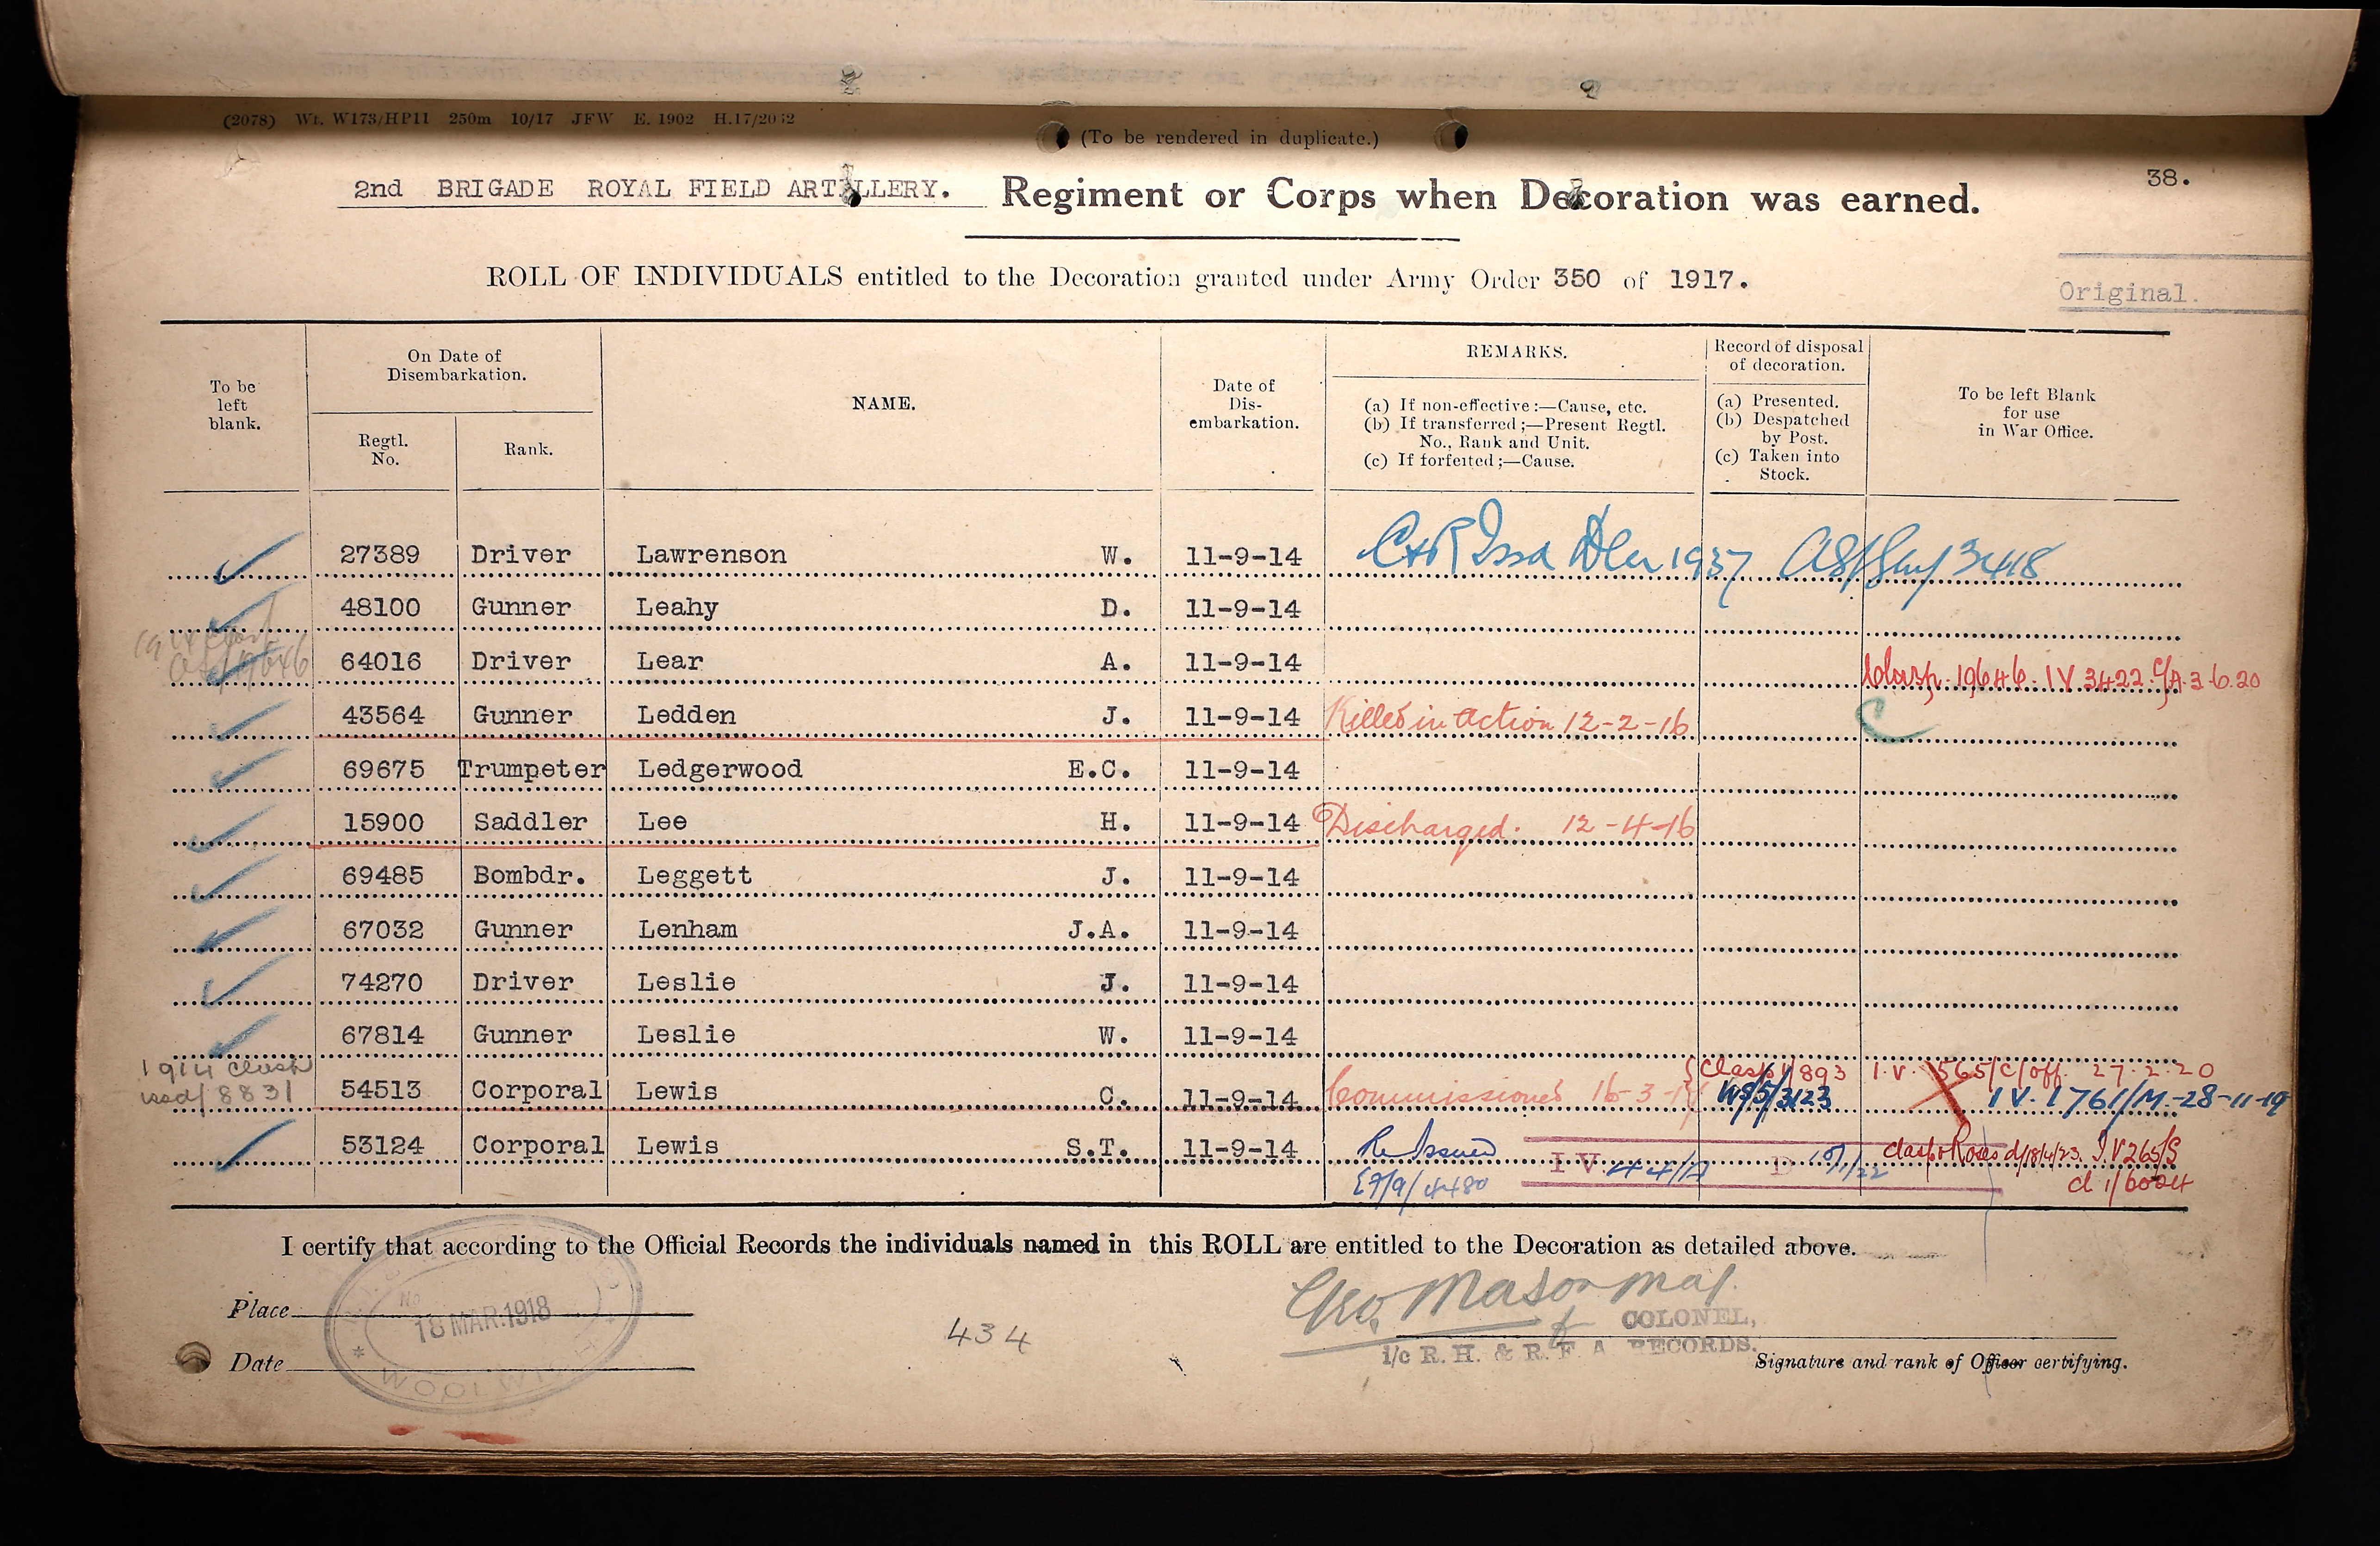 (2078) Wt. W173/HP11 250m 10/17 JFW E. 1902 H.17/2052
(To be rendered in duplicate.)
38.
2nd BRIGADE ROYAL FIELD ARTILLERY. Regiment or Corps when Decoration was earned.
ROLL OF INDIVIDUALS entitled to the Decoration granted under Army Order 350 of 1917.
Original.
To be left blank.
On Date of Disembarkation.
Regtl. No.
Rank.
NAME.
Date of Dis-embarkation.
REMARKS.
(a) If non-effective:—Cause, etc.
(b) If transferred;—Present Regtl. No., Rank and Unit.
(c) If forfeited;—Cause.
Record of disposal of decoration.
(a) Presented.
(b) Despatched by Post.
(c) Taken into Stock.
To be left Blank for use in War Office.
27389 Driver Lawrenson W. 11-9-14 C & R Issd 1937 3418
48100 Gunner Leahy D. 11-9-14
64016 Driver Lear A. 11-9-14 Clasp 19646 IV 3422 C/A 3-6-20
43564 Gunner Ledden J. 11-9-14 Killed in Action 12-2-16 C
69675 Trumpeter Ledgerwood E.C. 11-9-14
15900 Saddler Lee H. 11-9-14 Discharged. 12-4-16
69485 Bombdr. Leggett J. 11-9-14
67032 Gunner Lenham J.A. 11-9-14
74270 Driver Leslie J. 11-9-14
67814 Gunner Leslie W. 11-9-14
1914 Clasp Clasp 1/893 I.V. 565/C/off. 27-2-20
issd/8831 54513 Corporal Lewis C. 11-9-14 Commissioned 16-3-1 WS/5/3123 IV. 1761/M-28-11-19
53124 Corporal Lewis S.T. 11-9-14 Re Issued IV 44/ D Clasp & Roses d/18/4/23. I.V 265/S
/9/4480 d 1/6024
I certify that according to the Official Records the individuals named in this ROLL are entitled to the Decoration as detailed above.
Geo. Mason Maj.
f COLONEL,
i/c R. H. & R. F. A RECORDS.
Place
18 MAR.1918
WOOLWICH
434
Date
Signature and rank of Officer certifying.